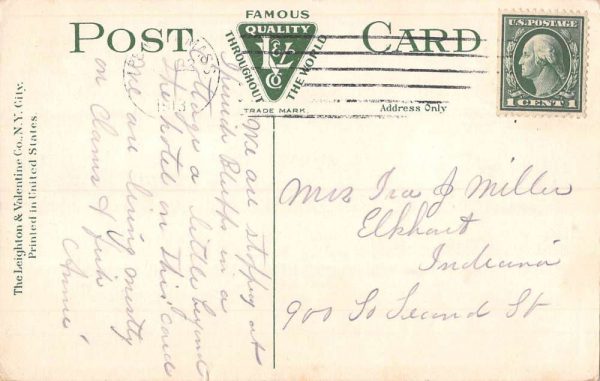 FAMOUS
POST CARD
QUALITY
THROUGHOUT THE WORLD
L&V
Co
TRADE MARK
Address Only
U.S. POSTAGE
1 CENT 1
MASS
1913
The Leighton & Valentine Co., N.Y. City.
Printed in United States.
We are stopping at
Bluffs in a
cottage a little beyond
the hotel on this card
We are living mostly
on clams & fish
Annie
Mrs Ira J Miller
Elkhart
Indiana
900 So Second St